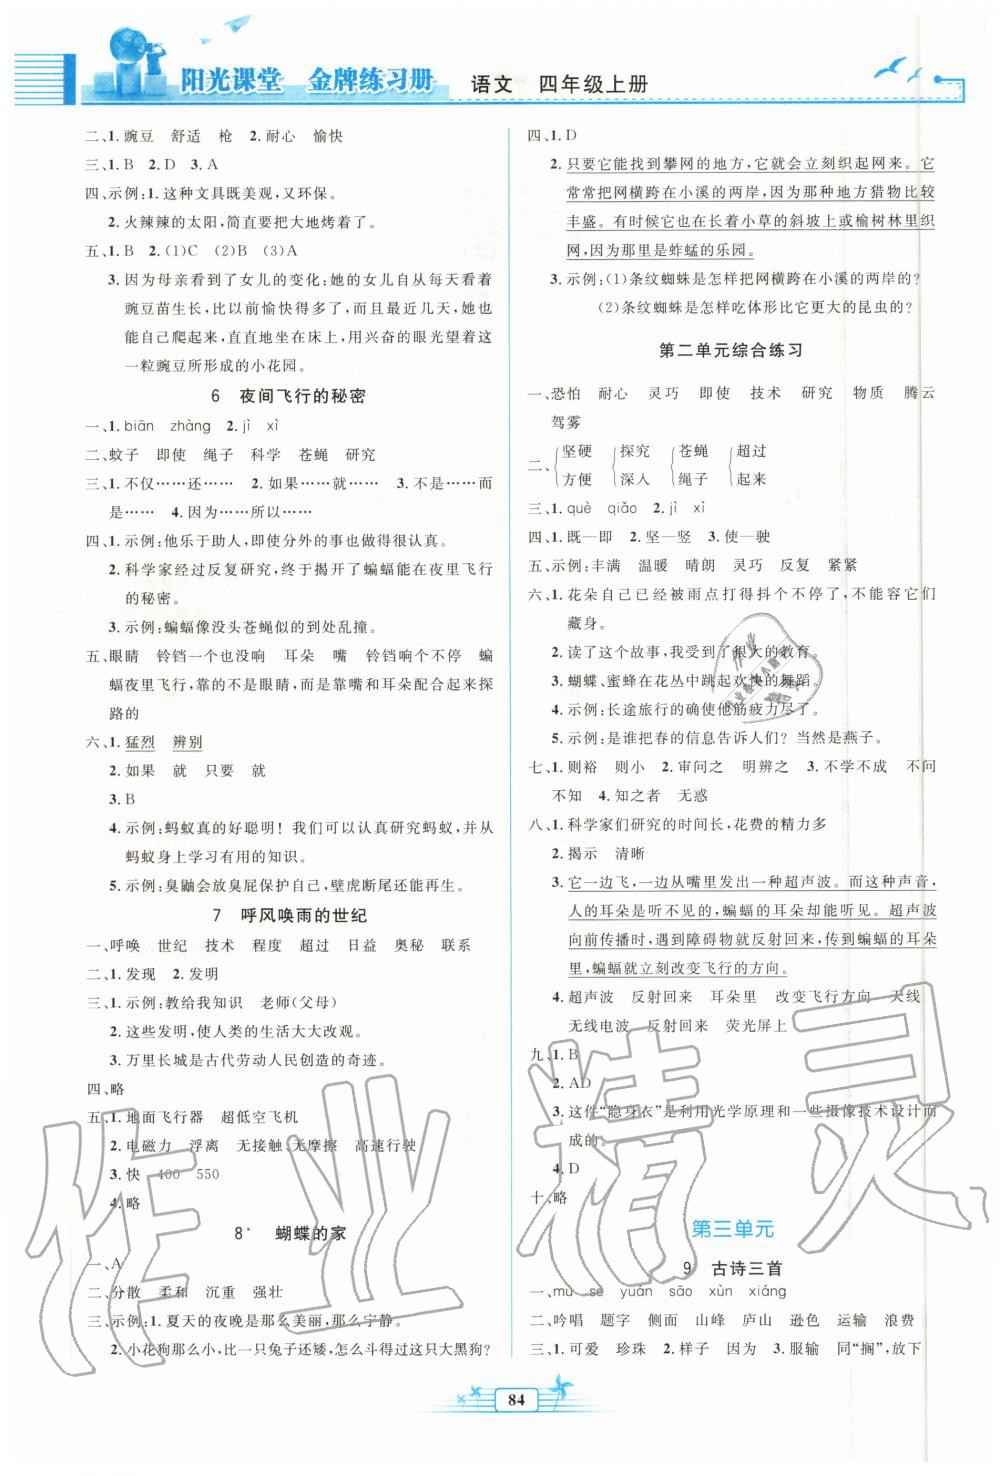 阳光课堂 金牌练习册 语文 四年级上册
二、1.豌豆 舒适 枪 2.耐心 愉快
三、1.B 2.D 3.A
四、示例:1.这种文具既美观,又环保。
2.火辣辣的太阳,简直要把大地烤着了。
五、1.B 2.(1)C (2)B (3)A
3.因为母亲看到了女儿的变化:她的女儿自从每天看着
豌豆苗生长,比以前愉快得多了。而在最近几天,她也
能自己爬起来,直直地坐在床上,用兴奋的眼光望着这
一粒豌豆所形成的小花园。
6 夜间飞行的秘密
一、1.biān zhàng 2.jì xì
二、蚊子 即使 绳子 科学 苍蝇 研究
三、1.不仅……还…… 2.如果……就…… 3.不是……而
是…… 4.因为……所以……
四、1.示例:他乐于助人,即使分外的事也做得很认真。
2.科学家经过反复研究,终于揭开了蝙蝠能在夜里飞行
的秘密。
3.示例:蝙蝠像没头苍蝇似的到处乱撞。
五、眼睛 铃铛一个也没响 耳朵 嘴 铃铛响个不停 蝙
蝠夜里飞行,靠的不是眼睛,而是嘴和耳朵配合起来探
路的
六、1.猛烈 辨别
2.如果 就 只要 就
3.B
4.示例:蚂蚁真的好聪明!我们可以认真研究蚂蚁,并从
蚂蚁身上学习有用的知识。
5.示例:臭鼬会放臭屁保护自己,壁虎断尾还能再生。
7 呼风唤雨的世纪
一、呼唤 世纪 技术 程度 超过 日益 奥秘 联系
二、1.发现 2.发明
三、1.示例:教给我知识 老师(父母)
2.这些发明,使人类的生活大大改观。
3.万里长城是古代劳动人民创造的奇迹。
四、略
五、1.地面飞行器 超低空飞机
2.电磁力 浮离 无接触、无摩擦 高速行驶
3.快 400 550
4.略
8* 蝴蝶的家
一、A
二、分散 柔和 沉重 强壮
三、示例:1.夏天的夜晚是那么美丽,那么宁静。
2.小花狗那么小,比一只兔子还矮,怎么斗得过这只大黑狗?
四、1.D
2.只要它能找到攀网的地方,它就会立刻织起网来。它
常常把网横跨在小溪的两岸,因为那种地方猎物比较
丰盛。有时候它也在长着小草的斜坡上或榆树林里织
网,因为那里是蚱蜢的乐园。
3.示例:(1)条纹蜘蛛是怎样把网横跨在小溪的两岸的?
(2)条纹蜘蛛是怎样吃体形比它更大的昆虫的?
第二单元综合练习
一、恐怕 耐心 灵巧 即使 技术 研究 物质 腾云
驾雾
二、坚硬 探究 苍蝇 超过
方便 深入 绳子 起来
三、1.què qiǎo 2.jì xì
四、1.既—即 2.坚—竖 3.使—驶
五、示例:丰满 温暖 晴朗 灵巧 反复 紧紧
六、1.花朵自己已经被雨点打得抖个不停了,不能容它们
藏身。
2.读了这个故事,我受到了很大的教育。
3.蝴蝶、蜜蜂在花丛中跳起欢快的舞蹈。
4.示例:长途旅行的确使他筋疲力尽了。
5.示例:是谁把春的信息告诉人们?当然是燕子。
七、1.则裕 则小 2.审问之 明辨之 3.不学不成 不问
不知 4.知之者 无惑
八、1.科学家们研究的时间长,花费的精力多
2.揭示 清晰
3.它一边飞,一边从嘴里发出一种超声波。而这种声音,
人的耳朵是听不见的,蝙蝠的耳朵却能听见。超声波
向前传播时,遇到障碍物就反射回来,传到蝙蝠的耳朵
里,蝙蝠就立刻改变飞行的方向。
4.超声波 反射回来 耳朵里 改变飞行方向 天线
无线电波 反射回来 荧光屏上
九、1.B
2.AD
3.这件“隐身衣”是利用光学原理和一些摄像技术设计而
成的。
4.D
十、略
第三单元
9 古诗三首
一、mù sè yuán sāo xùn xiáng
二、吟唱 题字 侧面 山峰 庐山 逊色 运输 浪费
三、1.可爱 珍珠 2.样子 因为 3.服输 同“搁”,放下
84
作业精灵